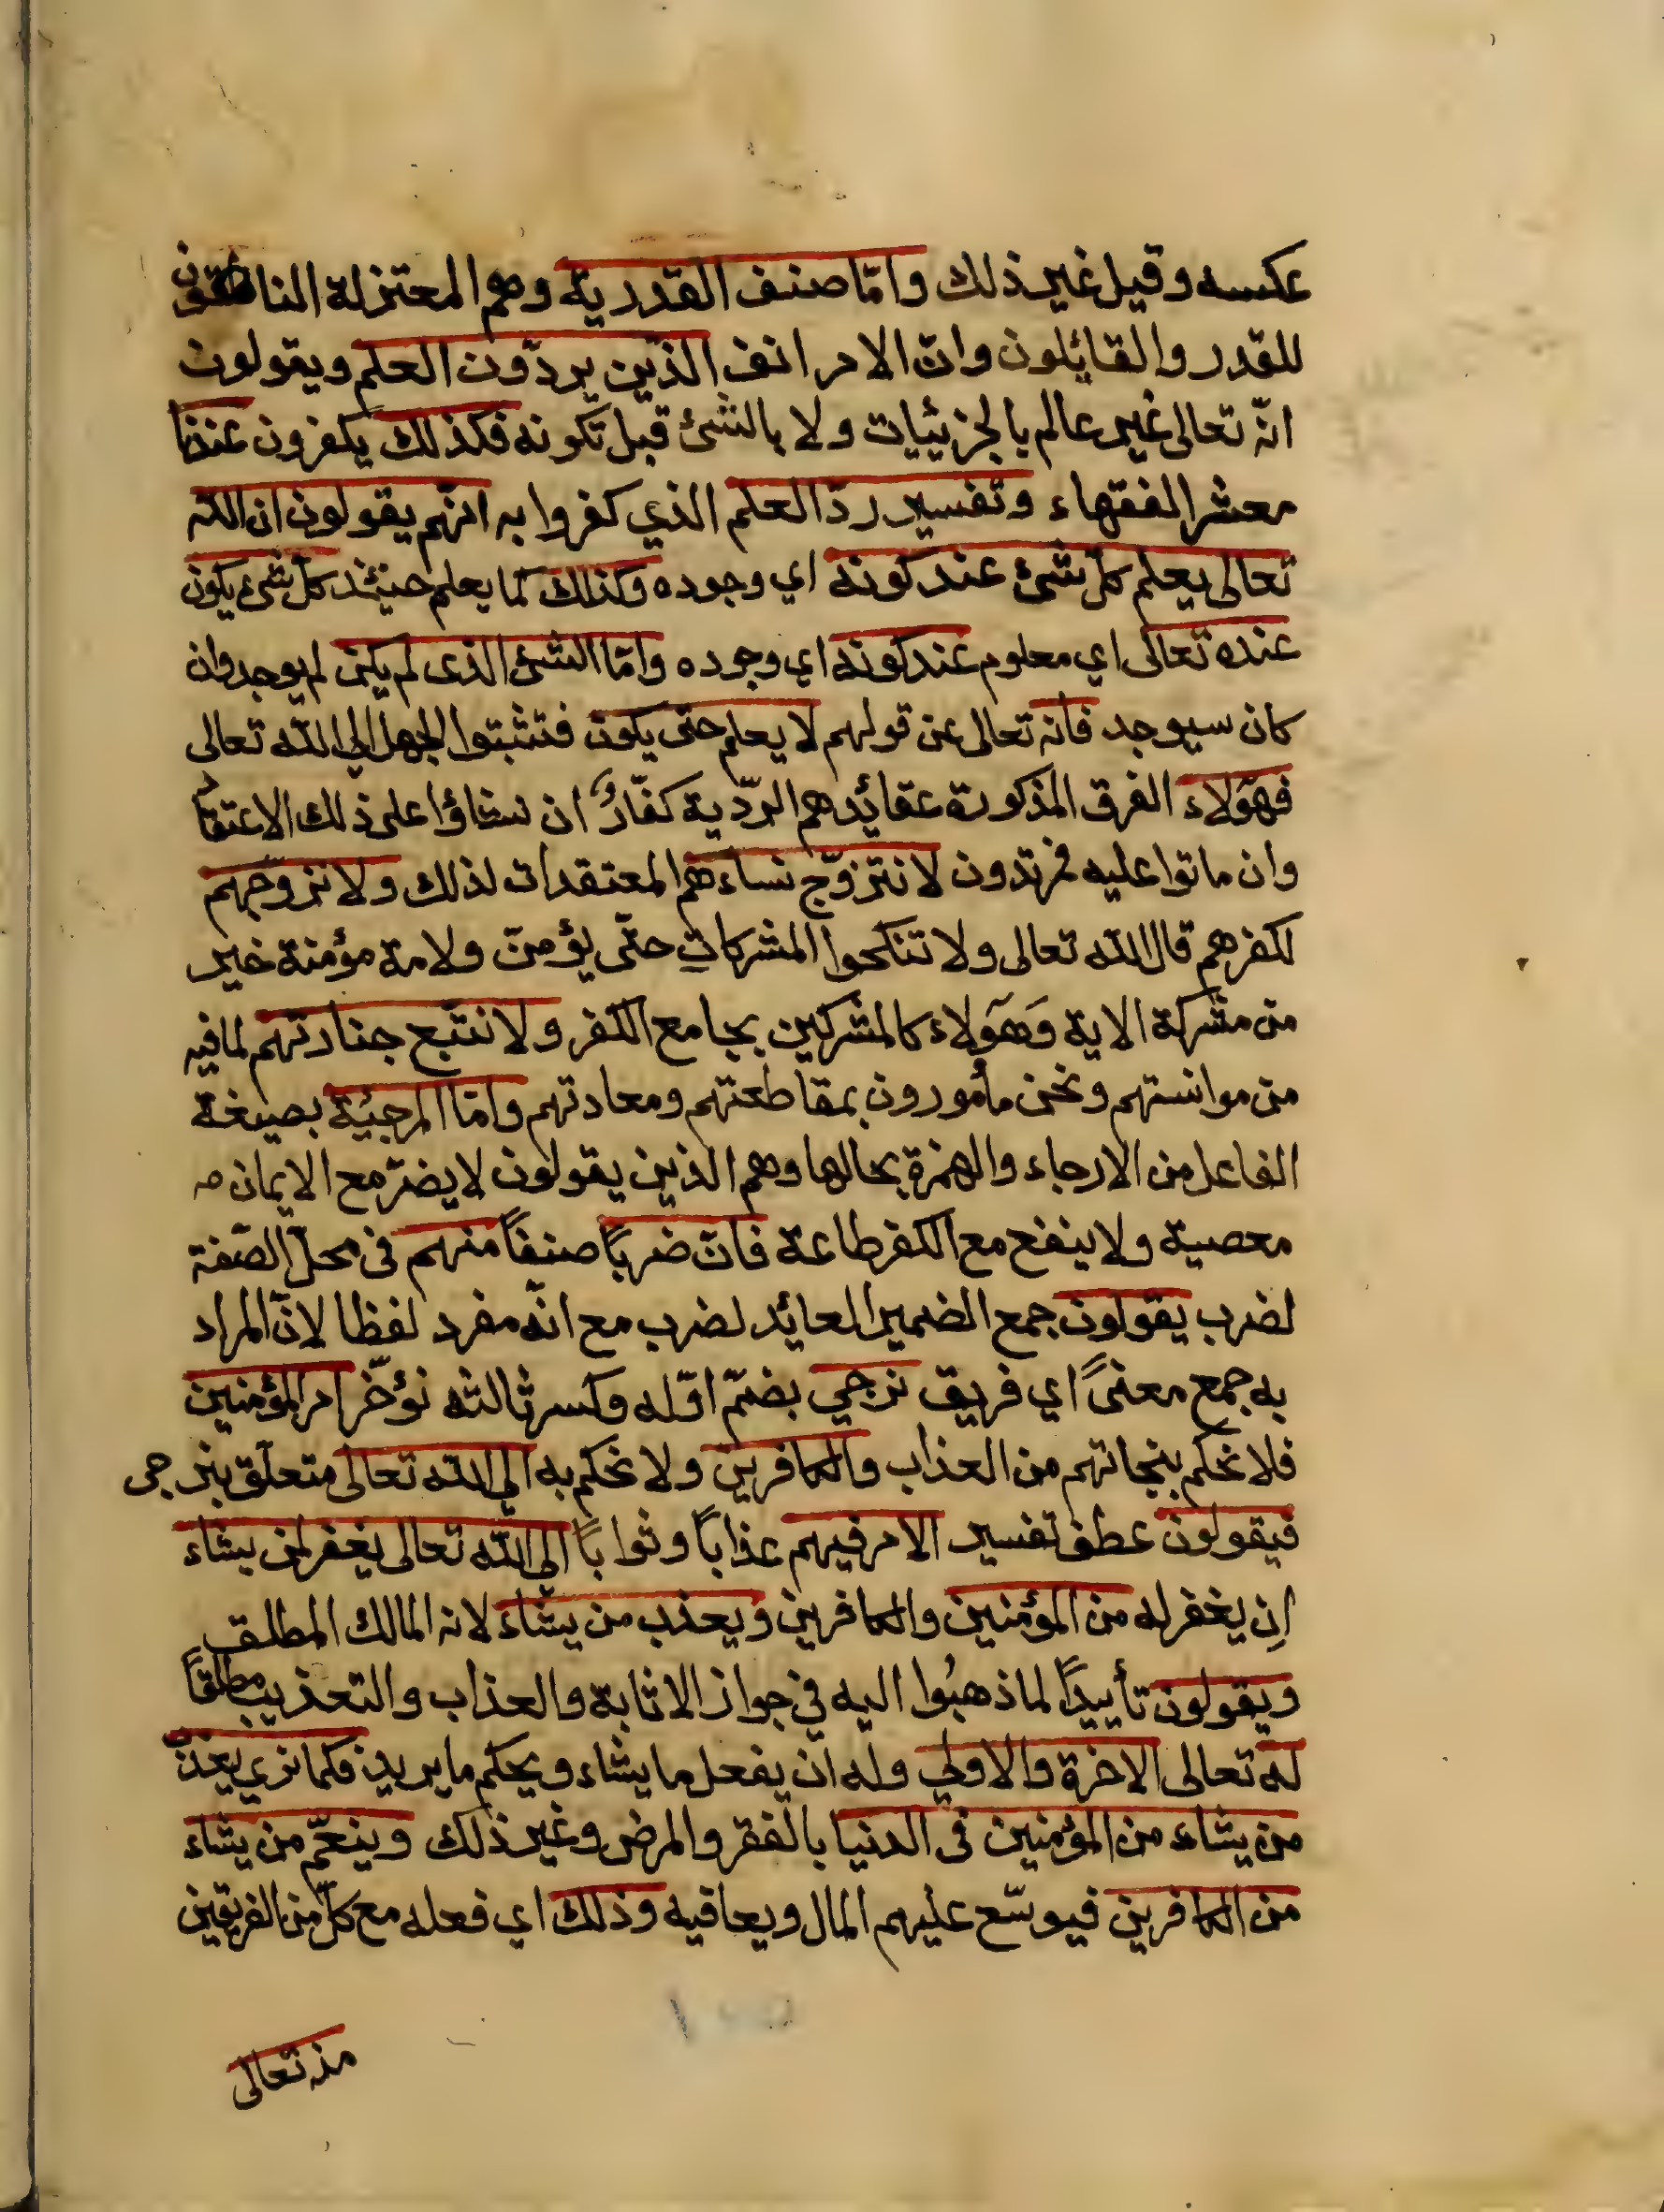 عكسه وقيل غير ذلك وامّا صنف القدرية وهم المعتزلة
للقدر والقائلون وانّ الامر انف الذين يردّون العلم ويقولون
انّه تعالى غير عالم بالجزئيات ولا بالشئ قبل تكونه فكذلك يكفرون عندنا
معشر الفقهاء وتفسير ردّ العلم الذي كفروا به انّهم يقولون ان الله
تعالى يعلم كلّ شئ عند كونه اي وجوده وكذلك كما يعلم حينئذ كلّ شئ يكون
عنده تعالى اي معلوم عند كونه اي وجوده وامّا الشئ الذى لم يكن لم يوجد وان
كان سيوجد فانه تعالى عن قولهم لا يعلم حتى يكون فتثبتوا الجهل الي الله تعالى
فهؤلاء الفرق المذكورة عقائدهم الردّية كفّارٌ ان نشاؤا على ذلك الاعتقاد
وان ماتوا عليه فمرتدون لا نتزوّج نساءهم المعتقدات لذلك ولا نزوّجهم
لكفرهم قال الله تعالى ولا تنكحوا المشركات حتّى يؤمنّ ولامة مؤمنة خير
من مشركة الاية وَهَؤلاء كالمشركين بجامع الكفر ولا نتبع جنازتهم لما فيه
من موانستهم ونحن مأمورون بمقاطعتهم ومعادتهم وامّا المرجيئة بصيغة
الفاعل من الارجاء والهمزة بحالها وهم الذين يقولون لا يضرّ مع الايمان
معصية ولا ينفع مع الكفر طاعة فانّ ضربًا صنفًا منهم فى محلّ الصّفة
لضرب يقولون جمع الضمير العائد لضرب مع انّه مفرد لفظا لانّ المراد
به جمع معنىً اي فريق نرجي بضمّ اوّله وكسر ثالثه نؤخّر امر المؤمنين
فلا نحكم بنجاتهم من العذاب والكافرين ولا نحكم به الي الله تعالى متعلّق بنرجى
فيقولون عطف تفسير الامر فيهم عذابًا وثوابًا الى الله تعالى يغفر لمن يشاء
اِن يغفر له من المؤمنين والكافرين ويعذب من يشاء لانه المالك المطلق
ويقولون تأييدًا لما ذهبُوا اليه في جواز الاثابة والعذاب والتعذيب مطلقًا
له تعالى الاخرة والاولي وله ان يفعل ما يشاء ويحكم ما يريد فكما نري يعذّب
من يشاء من المؤمنين فى الدنيا بالفقر والمرض وغير ذلك وينعّم من يشاء
من الكافرين فيوسّع عليهم المال ويعافيه وذلك اي فعله مع كلّ من الفريقين
منه تعالى